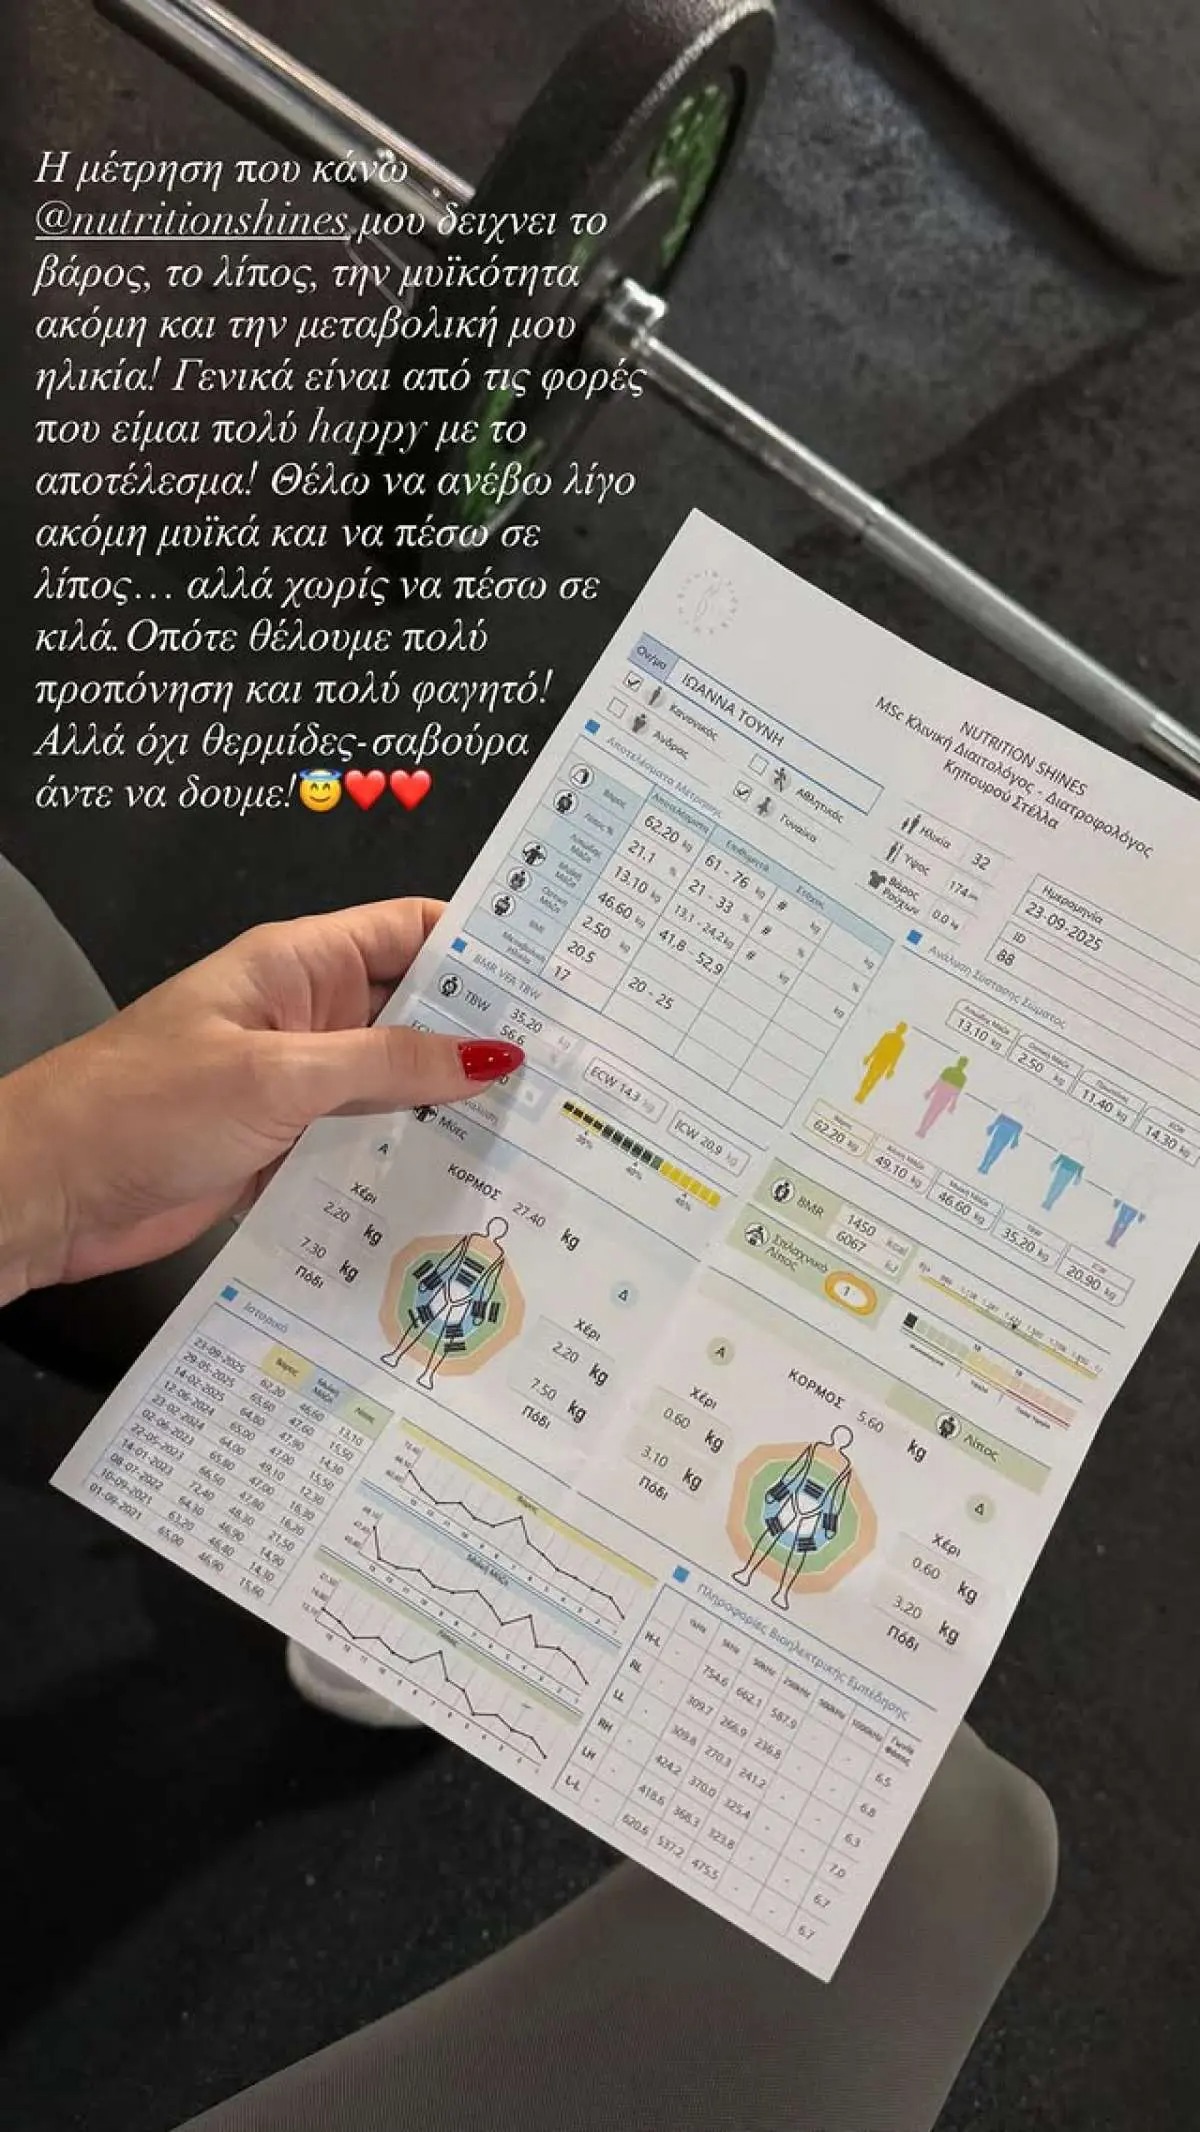 Η μέτρηση που κάνω
@nutritionshines μου δειχνει το
βάρος, το λίπος, την μυϊκότητα
ακόμη και την μεταβολική μου
ηλικία! Γενικά είναι από τις φορές
που είμαι πολύ happy με το
αποτέλεσμα! Θέλω να ανέβω λίγο
ακόμη μυϊκά και να πέσω σε
λίπος... αλλά χωρίς να πέσω σε
κιλά.. Οπότε θέλουμε πολύ
προπόνηση και πολύ φαγητό!
Αλλά όχι θερμίδες-σαβούρα
άντε να δουμε!😇❤️❤️
Ον/μο ΙΩΑΝΝΑ ΤΟΥΝΗ
Κανονικός Αθλητικός
Άνδρας Γυναίκα
NUTRITION SHINES
MSc Κλινική Διαιτολόγος - Διατροφολόγος
Κηπουρού Στέλλα
Ηλικία 32
Ύψος 174 cm
Βάρος Ρούχων 0.0 kg
Ημερομηνία
23-09-2025
ID
88
Αποτελέσματα Μέτρησης
Αποτελέσματα Επιθυμητά Στόχος
Βάρος 62.20 kg 61 - 76 kg # kg
Λίπος % 21.1 % 21 - 33 % # %
Λιπώδης Μάζα 13.10 kg 13,1 - 24,2 kg # kg
Μυϊκή Μάζα 46.60 kg 41,8 - 52,9
Οστική Μάζα 2.50 kg
BMI 20.5 20 - 25
Μεταβολική ηλικία 17
BMR VFA TBW
TBW 35.20 kg
56.6
ECW 14.3 kg
ICW 20.9 kg
Ανάλυση Σύστασης Σώματος
Λιπώδης Μάζα 13.10 kg
Οστική Μάζα 2.50 kg
Πρωτεΐνες 11.40 kg
ECW 14.30 kg
Βάρος 62.20 kg
Άλιπη Μάζα 49.10 kg
Μυϊκή Μάζα 46.60 kg
TBW 35.20 kg
ICW 20.90 kg
BMR 1450 kcal
6067 kJ
Σπλαχνικό Λίπος 1
Μύες
Α Δ
ΚΟΡΜΟΣ 27.40 kg
Χέρι 2.20 kg
7.30 kg Πόδι
Χέρι 2.20 kg
7.50 kg Πόδι
Λίπος
Α Δ
ΚΟΡΜΟΣ 5.60 kg
Χέρι 0.60 kg
3.10 kg Πόδι
Χέρι 0.60 kg
3.20 kg Πόδι
Ιστορικό
Βάρος Μυϊκή Μάζα Λίπος
23-09-2025 62,20 46,60 13,10
29-05-2025 65,60 47,60 15,50
14-02-2025 64,80 47,90 14,30
12-06-2024 65,00 47,00 15,50
23-02-2024 64,00 49,10 12,30
02-06-2023 65,80 47,00 16,30
22-05-2023 66,50 47,80 16,20
14-01-2023 72,40 48,30 21,50
08-07-2022 64,30 46,90 14,90
10-09-2021 63,20 46,40 14,30
01-09-2021 65,00 46,90 15,60
Βάρος
Μυϊκή Μάζα
Λίπος
Πληροφορίες Βιοηλεκτρικής Εμπέδησης
1kHz 5kHz 50kHz 250kHz 500kHz 1000kHz Γωνία φάσης
H-L - 754.6 662.1 587.9 - - 6.5
RL - 309.7 266.9 236.8 - - 6.8
LL - 309.8 270.3 241.2 - - 6.3
RH - 424.2 370.0 325.4 - - 7.0
LH - 418.6 368.3 323.8 - - 6.7
L-L - 620.6 537.2 475.5 - - 6.7